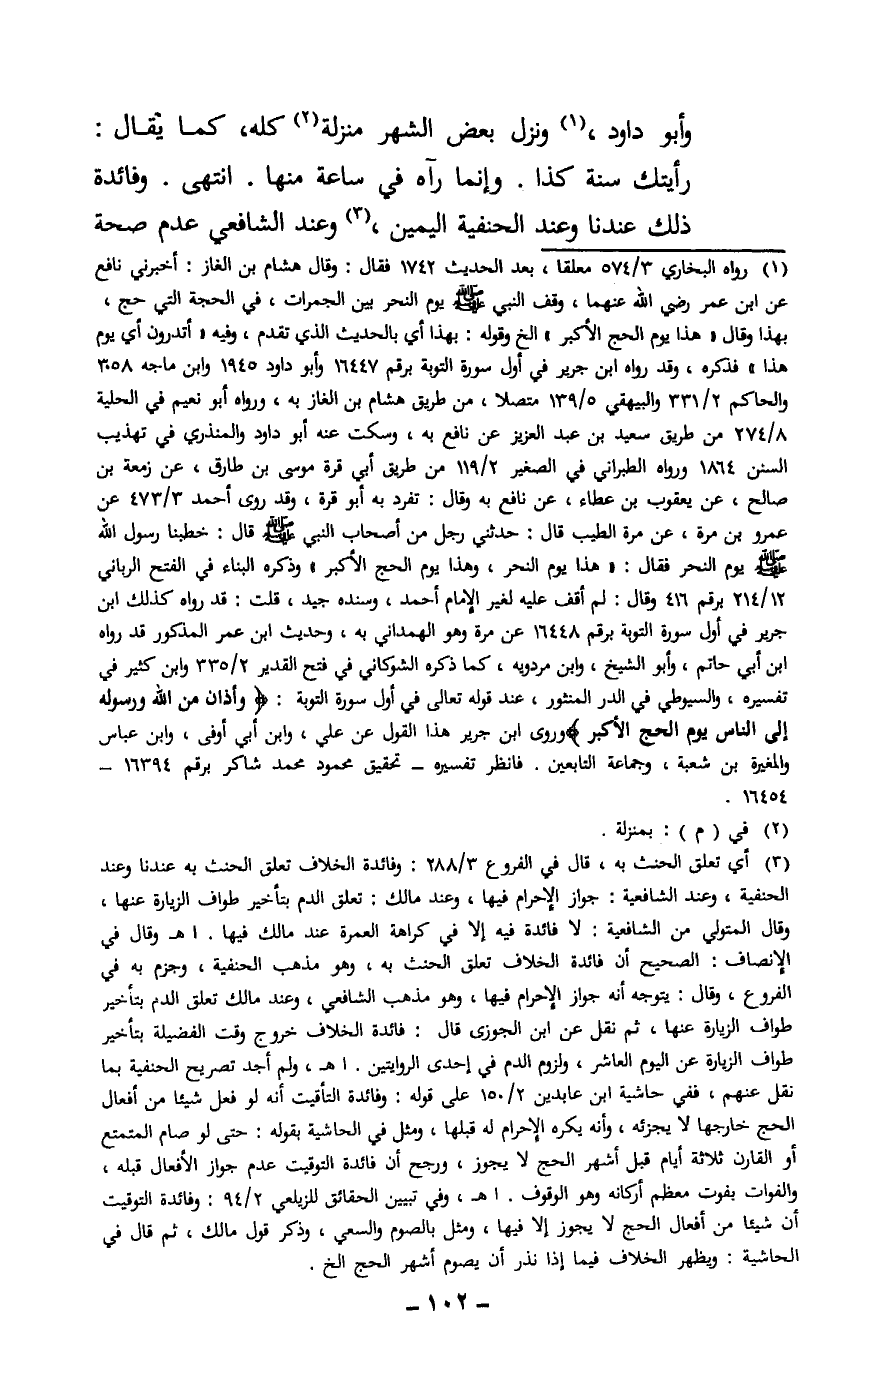 وأبو داود ،(١) ونزل بعض الشهر منزلة(٢) كله، كمـا يُقـال :
رأيتك سنة كذا . وإنما رآه في ساعة منها . انتهى . وفائدة
ذلك عندنا وعند الحنفية اليمين ،(٣) وعند الشافعي عدم صحة
(١) رواه البخاري ٥٧٤/٣ معلقا ، بعد الحديث ١٧٤٢ فقال : وقال هشام بن الغاز : أخبرني نافع
عن ابن عمر رضي الله عنهما ، وقف النبي ﷺ يوم النحر بين الجمرات ، في الحجة التي حج ،
بهذا وقال « هذا يوم الحج الأكبر » الخ وقوله : بهذا أي بالحديث الذي تقدم ، وفيه « أتدرون أي يوم
هذا » فذكره ، وقد رواه ابن جرير في أول سورة التوبة برقم ١٦٤٤٧ وأبو داود ١٩٤٥ وابن ماجه ٣٠٥٨
والحاكم ٣٣١/٢ والبيهقي ١٣٩/٥ متصلا ، من طريق هشام بن الغاز به ، ورواه أبو نعيم في الحلية
٢٧٤/٨ من طريق سعيد بن عبد العزيز عن نافع به ، وسكت عنه أبو داود والمنذري في تهذيب
السنن ١٨٦٤ ورواه الطبراني في الصغير ١١٩/٢ من طريق أبي قرة موسى بن طارق ، عن زمعة بن
صالح ، عن يعقوب بن عطاء ، عن نافع به وقال : تفرد به أبو قرة ، وقد روى أحمد ٤٧٣/٣ عن
عمرو بن مرة ، عن مرة الطيب قال : حدثني رجل من أصحاب النبي ﷺ قال : خطبنا رسول الله
ﷺ يوم النحر فقال : « هذا يوم النحر ، وهذا يوم الحج الأكبر » وذكره البناء في الفتح الرباني
٢١٤/١٢ برقم ٤١٦ وقال : لم أقف عليه لغير الإمام أحمد ، وسنده جيد ، قلت : قد رواه كذلك ابن
جرير في أول سورة التوبة برقم ١٦٤٤٨ عن مرة وهو الهمداني به ، وحديث ابن عمر المذكور قد رواه
ابن أبي حاتم ، وأبو الشيخ ، وابن مردويه ، كما ذكره الشوكاني في فتح القدير ٣٣٥/٢ وابن كثير في
تفسيره ، والسيوطي في الدر المنثور ، عند قوله تعالى في أول سورة التوبة : ﴿ وأذان من الله ورسوله
إلى الناس يوم الحج الأكبر ﴾وروى ابن جرير هذا القول عن علي ، وابن أبي أوفى ، وابن عباس
والمغيرة بن شعبة ، وجماعة التابعين . فانظر تفسيره ــ تحقيق محمود محمد شاكر برقم ١٦٣٩٤ ــ
١٦٤٥٤ .
(٢) في ( م ) : بمنزلة .
(٣) أي تعلق الحنث به ، قال في الفروع ٢٨٨/٣ : وفائدة الخلاف تعلق الحنث به عندنا وعند
الحنفية ، وعند الشافعية : جواز الإحرام فيها ، وعند مالك : تعلق الدم بتأخير طواف الزيارة عنها ،
وقال المتولي من الشافعية : لا فائدة فيه إلا في كراهة العمرة عند مالك فيها . اهـ وقال في
الإنصاف : الصحيح أن فائدة الخلاف تعلق الحنث به ، وهو مذهب الحنفية ، وجزم به في
الفروع ، وقال : يتوجه أنه جواز الإحرام فيها ، وهو مذهب الشافعي ، وعند مالك تعلق الدم بتأخير
طواف الزيارة عنها ، ثم نقل عن ابن الجوزى قال : فائدة الخلاف خروج وقت الفضيلة بتأخير
طواف الزيارة عن اليوم العاشر ، ولزوم الدم في إحدى الروايتين . اهـ ، ولم أجد تصريح الحنفية بما
نقل عنهم ، ففي حاشية ابن عابدين ١٥٠/٢ على قوله : وفائدة التأقيت أنه لو فعل شيئا من أفعال
الحج خارجها لا يجزئه ، وأنه يكره الإحرام له قبلها ، ومثل في الحاشية بقوله : حتى لو صام المتمتع
أو القارن ثلاثة أيام قبل أشهر الحج لا يجوز ، ورجح أن فائدة التوقيت عدم جواز الأفعال قبله ،
والفوات بفوت معظم أركانه وهو الوقوف . اهـ ، وفي تبيين الحقائق للزيلعي ٩٤/٢ : وفائدة التوقيت
أن شيئا من أفعال الحج لا يجوز إلا فيها ، ومثل بالصوم والسعي ، وذكر قول مالك ، ثم قال في
الحاشية : ويظهر الخلاف فيما إذا نذر أن يصوم أشهر الحج الخ .
ــ ١٠٢ ــ